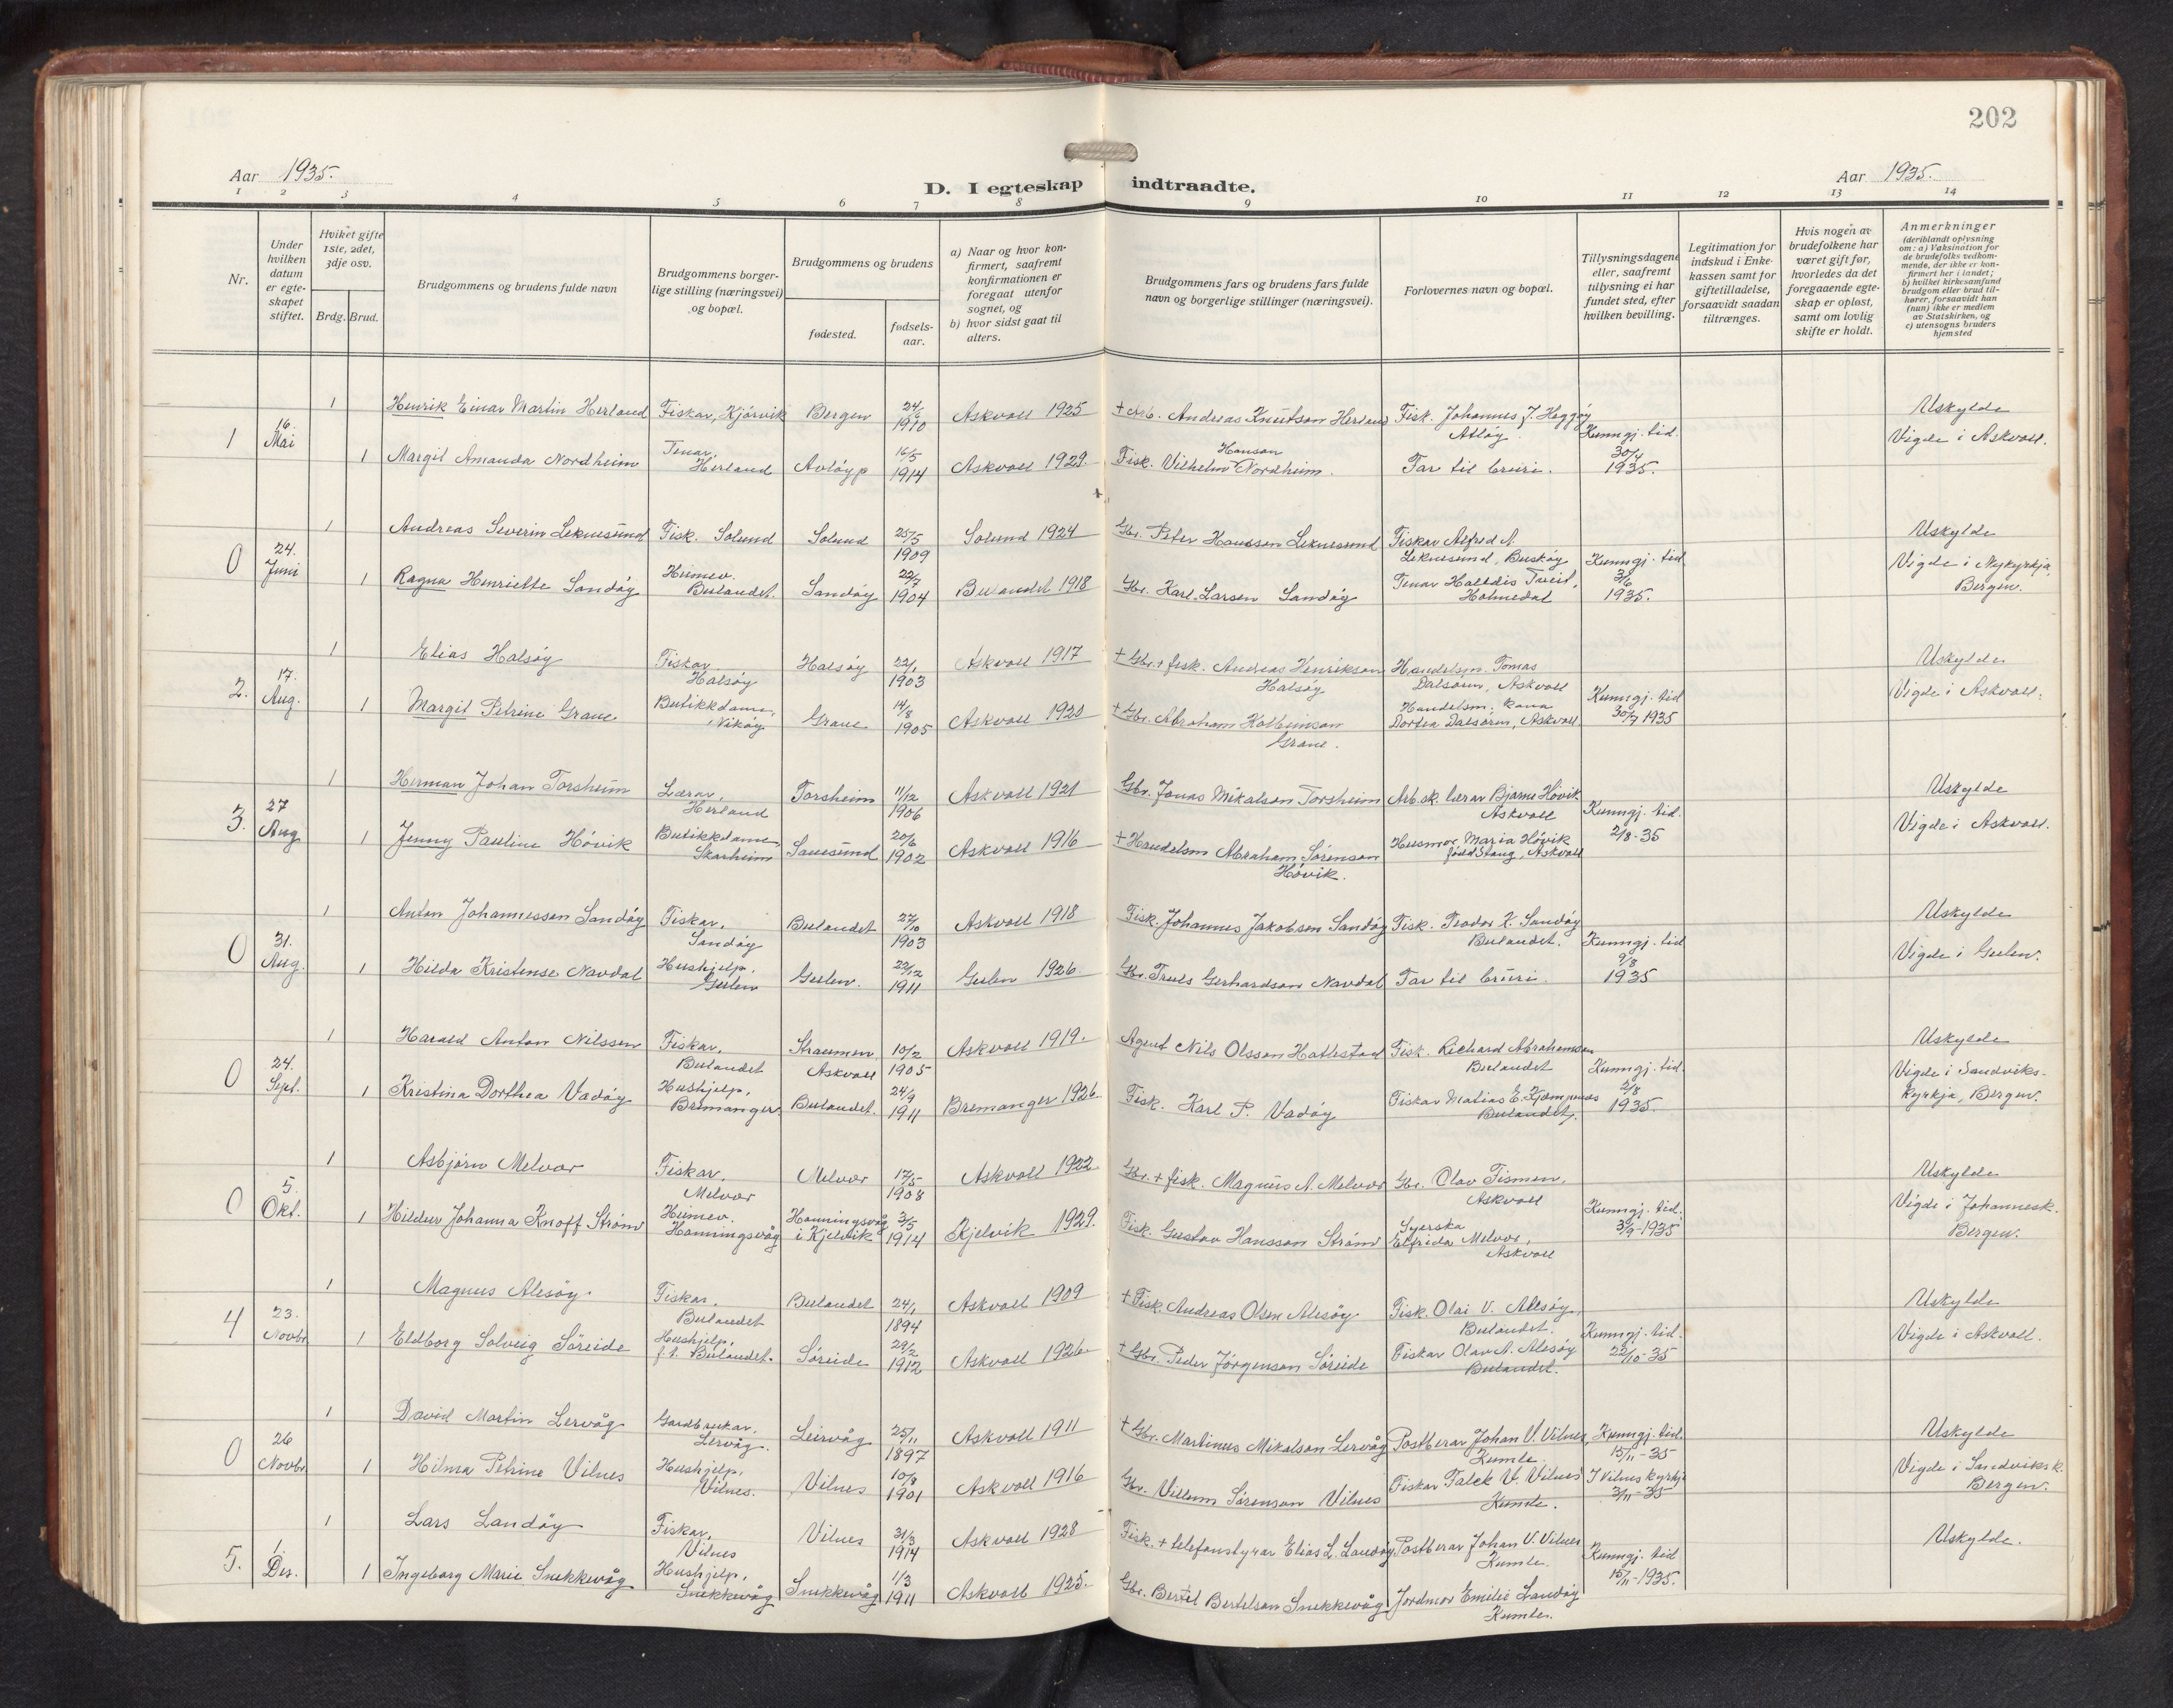 202
Aar 1935.
D. I egteskap indtraadte.
Aar 1935.
1 2 3 4 5 6 7 8 9 10 11 12 13 14
Nr.
Under hvilken datum er egteskapet stiftet.
Hvilket gifte 1ste, 2det, 3dje osv.
Brdg. Brud.
Brudgommens og brudens fulde navn
Brudgommens borgerlige stilling (næringsvei) og bopæl.
Brudgommens og brudens
fødested.
fødselsaar.
a) Naar og hvor konfirmert, saafremt konfirmationen er foregaat utenfor sognet, og
b) hvor sidst gaat til alters.
Brudgommens fars og brudens fars fulde navn og borgerlige stillinger (næringsvei).
Forlovernes navn og bopæl.
Tillysningsdagene eller, saafremt tillysning ei har fundet sted, efter hvilken bevilling.
Legitimation for indskud i Enkekassen samt for giftetilladelse, forsaavidt saadan tiltrænges.
Hvis nogen av brudefolkene har været gift før, hvorledes da det foregaaende egteskap er opløst, samt om lovlig skifte er holdt.
Anmerkninger (deriblandt oplysning om: a) Vaksination for de brudefolks vedkommende, der ikke er konfirmert her i landet; b) hvilket kirkesamfund brudgom eller brud tilhører, forsaavidt han (hun) ikke er medlem av Statskirken, og c) utensogns bruders hjemsted
1 16. Mai
1 Henrik Einar Martin Herland Fiskar, Kjörvik Bergen 24/6 1910 Askvoll 1925 + Arb. Andreas Knutson Herland Fisk. Johannes J. Heggöy Atlöy Kunngj. tid. 30/4 1935. Uskylde Vigde i Askvoll.
1 Margit Amanda Nordheim Tenar, Herland Avlöyp 16/5 1914 Askvoll 1929. Fisk. Vilhelm Hanson Nordheim. Far til bruri.
0 24. Juni
1 Andreas Severin Leknesund Fisk. Solund Solund 25/5 1909 Solund 1924 Gbr. Peter Hansson Leknesund Fiskar Alfred A. Leknesund, Buskøy Kunngj. tid 3/6 1935. Uskylde Vigde i Nykyrkja, Bergen.
1 Ragna Henriette Sandöy Heimev. Bulandet. Sandöy 22/7 1904 Bulandet 1918 Gbr. Karl Larsen Sandöy Tenar Halldis Tveit, Holmedal
2. 17. Aug.
1 Elias Halsöy Fiskar Halsöy Halsöy 22/1 1903 Askvoll 1917 + Gbr. + fisk. Andreas Henrikson Halsöy Handelsm. Tomas Dalsören, Askvoll Kunngj. tid 30/7 1935 Uskylde Vigde i Askvoll.
1 Margit Petrine Grane Butikkdame, Nikøy Grane 14/8 1905 Askvoll 1920 + Gbr. Abraham Kolbeinson Grane. Handelsm. kona Dortea Dalsören, Askvoll
3. 27 Aug
1 Herman Johan Torsheim Lærar, Herland Torsheim 11/12 1906 Askvoll 1921 Gbr. Jonas Mikalson Torsheim Arb.sk. lærar Bjarne Hövik Askvoll Kunngj. tid. 2/8-35 Uskylde Vigde i Askvoll.
1 Jenny Pauline Hövik Butikkdame, Skarheim Sauesund 20/6 1902 Askvoll 1916 + Handelsm Abraham Sörenson Hövik. Husmor Maria Hövik född Stang, Askvoll
0 31. Aug.
1 Anton Johannesson Sandöy Fiskar, Sandöy Bulandet 27/10 1903 Askvoll 1918 Fisk. Johannes Jakobsen Sandöy Fisk. Teodor K. Sandöy Bulandet. Kunngj. tid 9/8 1935 Uskylde Vigde i Gulen.
1 Hilda Kristense Navdal Hushjelp, Gulen Gulen. 22/12 1911 Gulen 1926 Gbr. Truls Gerhardson Navdal Far til bruri.
0 24. Sept.
1 Harald Anton Nilssen Fiskar, Bulandet Straumen Askvoll 10/2 1905 Askvoll 1919. Agent Nils Olsson Hatlestad Fisk. Richard Abrahamsen Bulandet Kunngj. tid. 2/8 1935. Uskylde Vigde i Sandvikskyrkja, Bergen.
1 Kristina Dorthea Vadöy Hushjelp, Bremanger Bulandet. 24/9 1911 Bremanger 1926 Fisk. Karl P. Vadöy Fiskar Matias E. Kjempenes Bulandet.
0 5. Okt.
1 Asbjörn Melvær Fiskar, Melvær Melvær 17/5 1908 Askvoll 1922 Gbr. + fisk. Magnus A. Melvær Gbr. Olav Tismen, Askvoll Kunngj. tid. 3/9-1935 Uskylde Vigde i Johannesk. Bergen.
1 Hildur Johanna Knoff Ström Heimev. Honningsvåg Honningsvåg i Kjelvik 3/5 1914 Kjelvik 1929. Fisk. Gustav Hansson Ström Syerska Elfrida Melvær, Askvoll
4 23. Novbr
1 Magnus Alesöy Fiskar, Bulandet Bulandet 24/1 1894 Askvoll 1909 + Fisk. Andreas Olsen Alesöy Fisk. Olai V. Alesöy, Bulandet. Kunngj. tid. 22/10-35 Uskylde Vigde i Askvoll.
1 Eldborg Solveig Söreide Hushjelp, f.t. Bulandet. Söreide 29/2 1912 Askvoll 1926 + Gbr. Peder Jörgenson Söreide Fiskar Olav A. Alesöy Bulandet.
0 26 Novbr
1 David Martin Lervåg Gardbrukar, Lervåg. Leirvåg 25/11 1897 Askvoll 1911 + Gbr. Martinus Mikalson Lervåg Postberar Johan V. Vilnes, Kumle. Kunngj. tid. 15/11-35 Uskylde Vigde i Sandviksk. Bergen.
1 Hilma Petrine Vilnes Hushjelp, Vilnes. Vilnes 10/8 1901 Askvoll 1916 Gbr. Villum Sörenson Vilnes Fiskar Falek V. Vilnes Kumle. I Vilnes kyrkje 3/11-35
5. 1. Des.
1 Lars Landöy Fiskar, Vilnes Vilnes 31/3 1914 Askvoll 1928 Fisk. + telefonstyrar Elias L. Landöy Postberar Johan V. Vilnes Kumle. Kunngj. tid 15/11-1935. Uskylde.
1 Ingeborg Marie Snekkevåg Hushjelp, Snekkevåg Snekkevåg 1/3 1911 Askvoll 1925. Gbr. Bertel Bertelson Snekkevåg Jordmor Emilie Landöy Kumle.